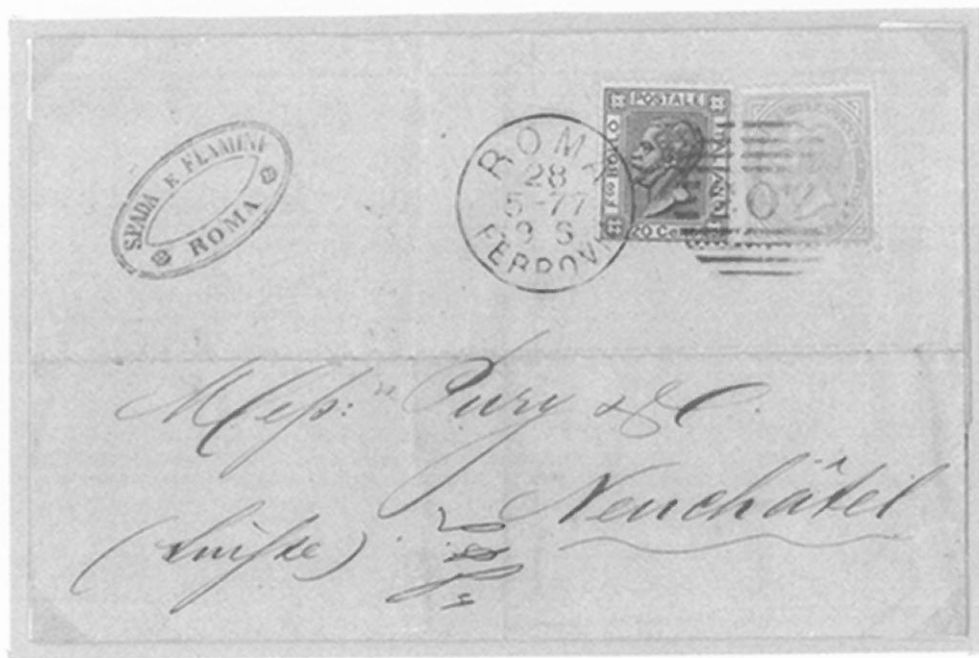 SPADA E FLAMINI
ROMA
ROMA
28
5-77
9 S
FERROVIA
POSTALE
FCO BOLLO
ITALIANO
20 Ce
Mess:rs Pury & C.
Neuchâtel
(Suisse)